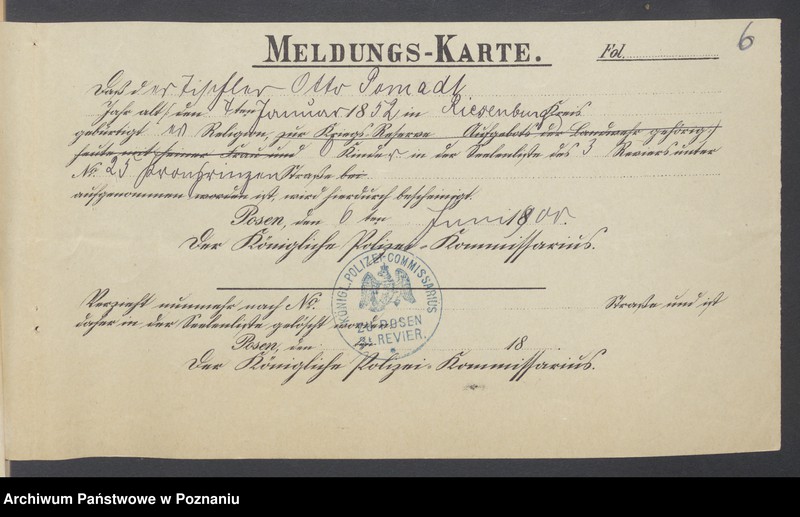 MELDUNGS-KARTE.
Fol.
6
Daß der Tischler Otto Pomadt
Jahr alt/: den 7ten Januar 1852 in Riesenburg Kreis
gebürtigt ev Religion, zur Kriegs-Reserve Aufgebots der Landwehr gehörig:/
heute mit seiner Frau und 0 Kinder in der Seelenliste des 3 Reviers unter
No. 25 Kronprinzen Straße bei
aufgenommen worden ist, wird hierdurch bescheinigt.
Posen, den 6 ten Juni 1900.
Der Königliche Polizei-Kommissarius.
KÖNIGL. POLIZEI-COMMISSARIUS
ZU POSEN
3. REVIER.
Verzieht nunmehr nach No. Straße und ist
daher in der Seelenliste gelöscht worden.
Posen, den ten 18
Der Königliche Polizei-Kommissarius.
Archiwum Państwowe w Poznaniu